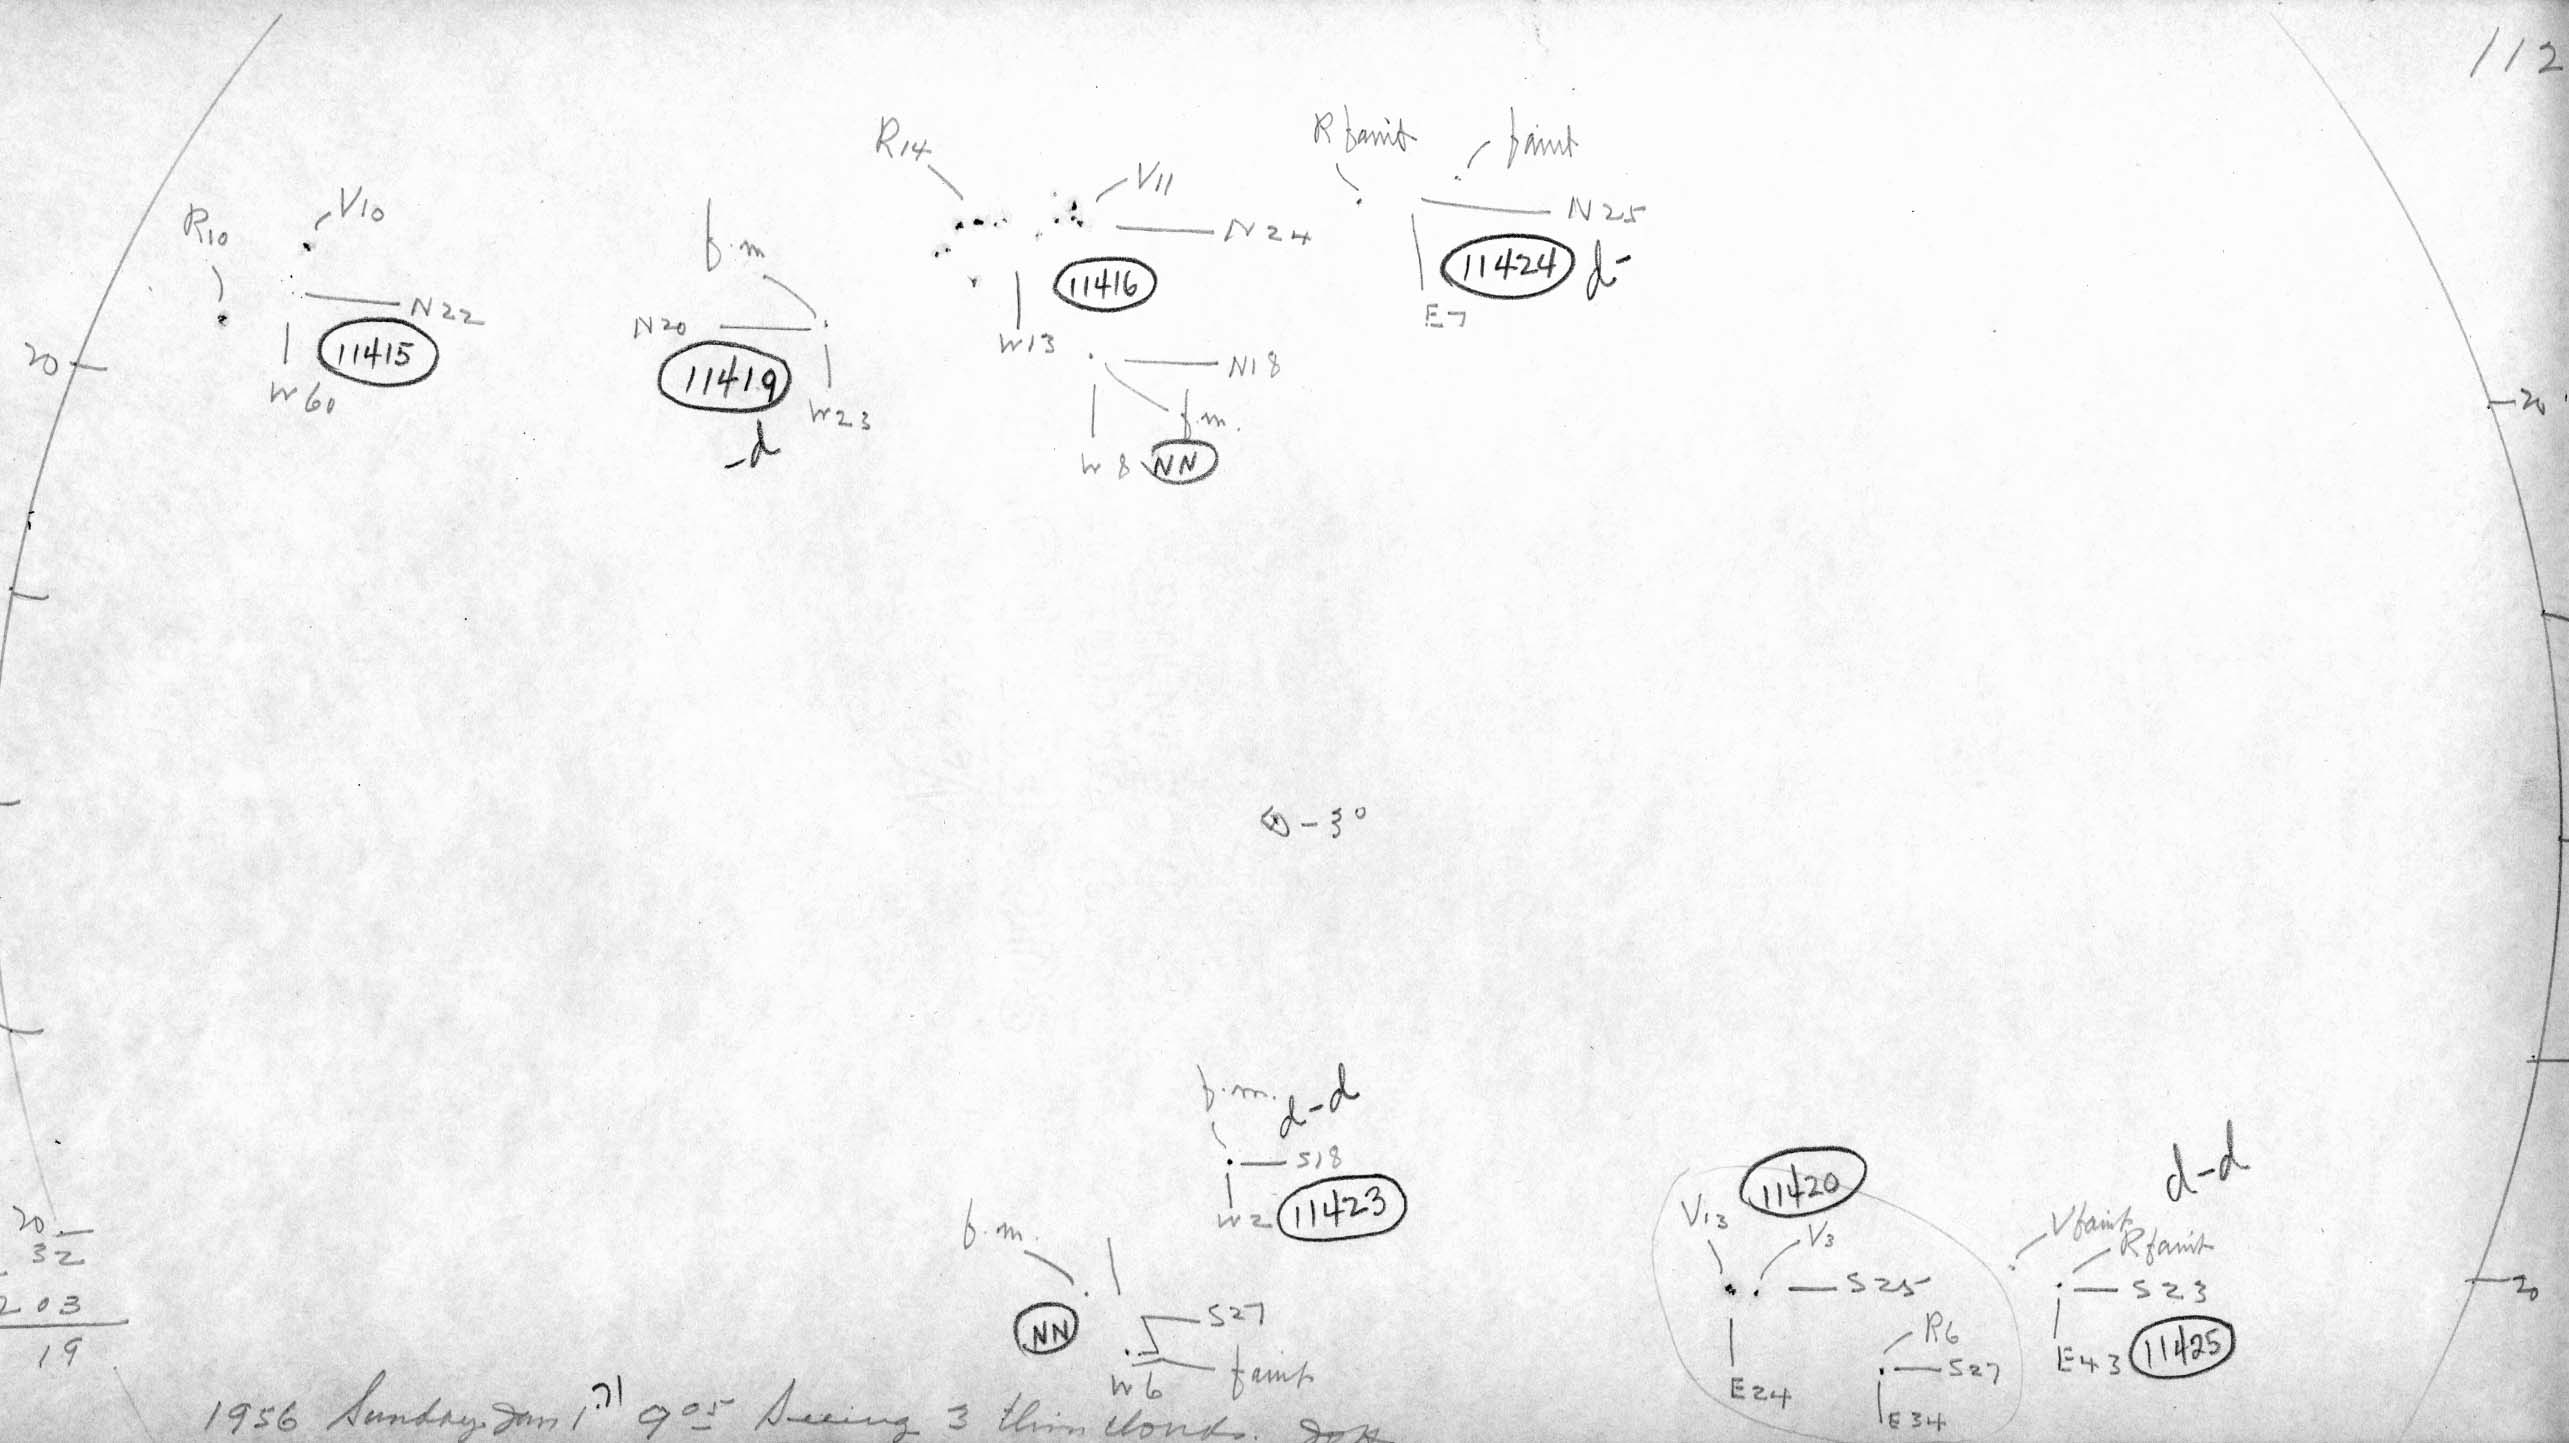 112
R14
V11
R faint
faint
R10
V10
N24
N25
11424 d-
11416
E7
f.m
N22
11415
W60
20
N20
11419
-d
W23
W13
N18
f.m.
W8 NN
20
-3°
f.m. d-d
S18
W2 11423
f.m.
NN
S27
W6 faint
11420
V13
V3
S25
E24
R6
S27
E34
d-d
V faint
R faint
S23
E43 11425
20
20
32
203
19
1956 Sunday Jan 1 9 05 Seeing 3 thin clouds.